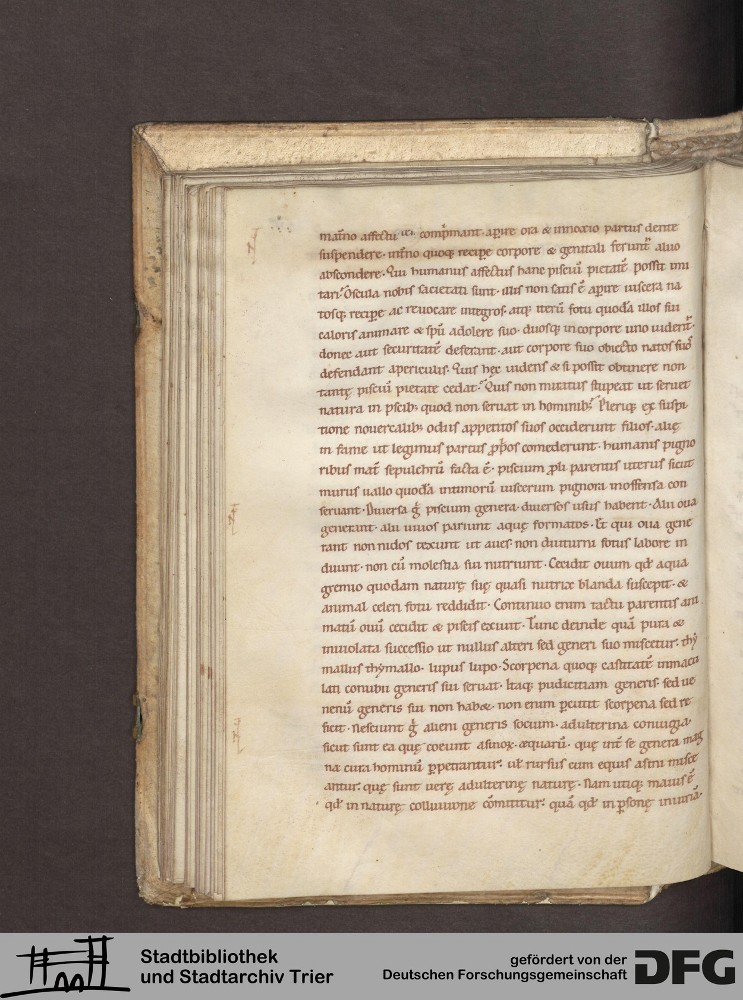 mat̄no affectu uel comp̄mant. aperire ora & innoxio partus dente
suspendere. int̄no quoq; recipe corpore & genitali ferunt̄ aluo
abscondere. Qui humanus affectus hanc pisciū pietatē possit imi
tari? Oscula nobis sacietati sunt. illis non satis ē aperire uiscera na
tosq; recipe ac reuocare integros. atq; iterū fotu quodā illos sui
caloris animare & spū adolere suo. duosq; in corpore uno uiderit.
donec aut securitatē deferant. aut corpore suo obiecto natos suos
defendant a periculis. Quis hęc uidens & si possit obtinere non
tantę pisciū pietate cedat? Quis non miratus stupeat ut seruet
natura in piscib; quod non seruat in hominib;? Pleriq; ex suspi
tione nouercalib; odiis appetitos suos occiderunt filios. alię
in fame ut legimus partus p̄p̄os comederunt. humanis pigno
ribus mat̄ sepulchrū facta ē. piscium ꝓli parentis uterus sicut
murus uallo quodā intimorū uiscerum pignora inoffensa con
seruant. Diuersa g̃ piscium genera. diuersos usus habent. Alii oua
generant. alii uiuos pariunt atque formatos. Et qui oua gene
rant non nidos texunt ut aues. non diuturni fotus labore in
duunt. non cū molestia sui nutriunt. Cecidit ouum qd̄ aqua
gremio quodam naturę suę quasi nutrix blanda suscepit. &
animal celeri fotu reddidit. Continuo enim tactu parentis ani
matū ouū cecidit & piscis exiuit. Tunc deinde quā pura &
inuiolata successio ut nullus alteri sed generi suo misceatur. thy
mallus thymallo. lupus lupo. Scorpena quoq; castitatē inmacu
lati conubii generis sui seruat. Itaq; pudicitiam generis. sed ue
nenū generis sui non habet. non enim ꝑcutit scorpena sed re
ficit. Nesciunt g̃ alieni generis socium. adulterina coniugia.
sicut sunt ea quę coeunt asinoꝝ. æquarū. quę int̄ se genera mag
na cura hominū ꝑpetrantur. uł rursus cum equus asini misce
antur. quę sunt uerę adulterinę naturę. Nam utiq; maius ē
qd̄ in naturę colluuione cōmittitur. quā qd̄ in ꝑsonę iniuriā.
Stadtbibliothek
und Stadtarchiv Trier
gefördert von der
Deutschen Forschungsgemeinschaft
DFG